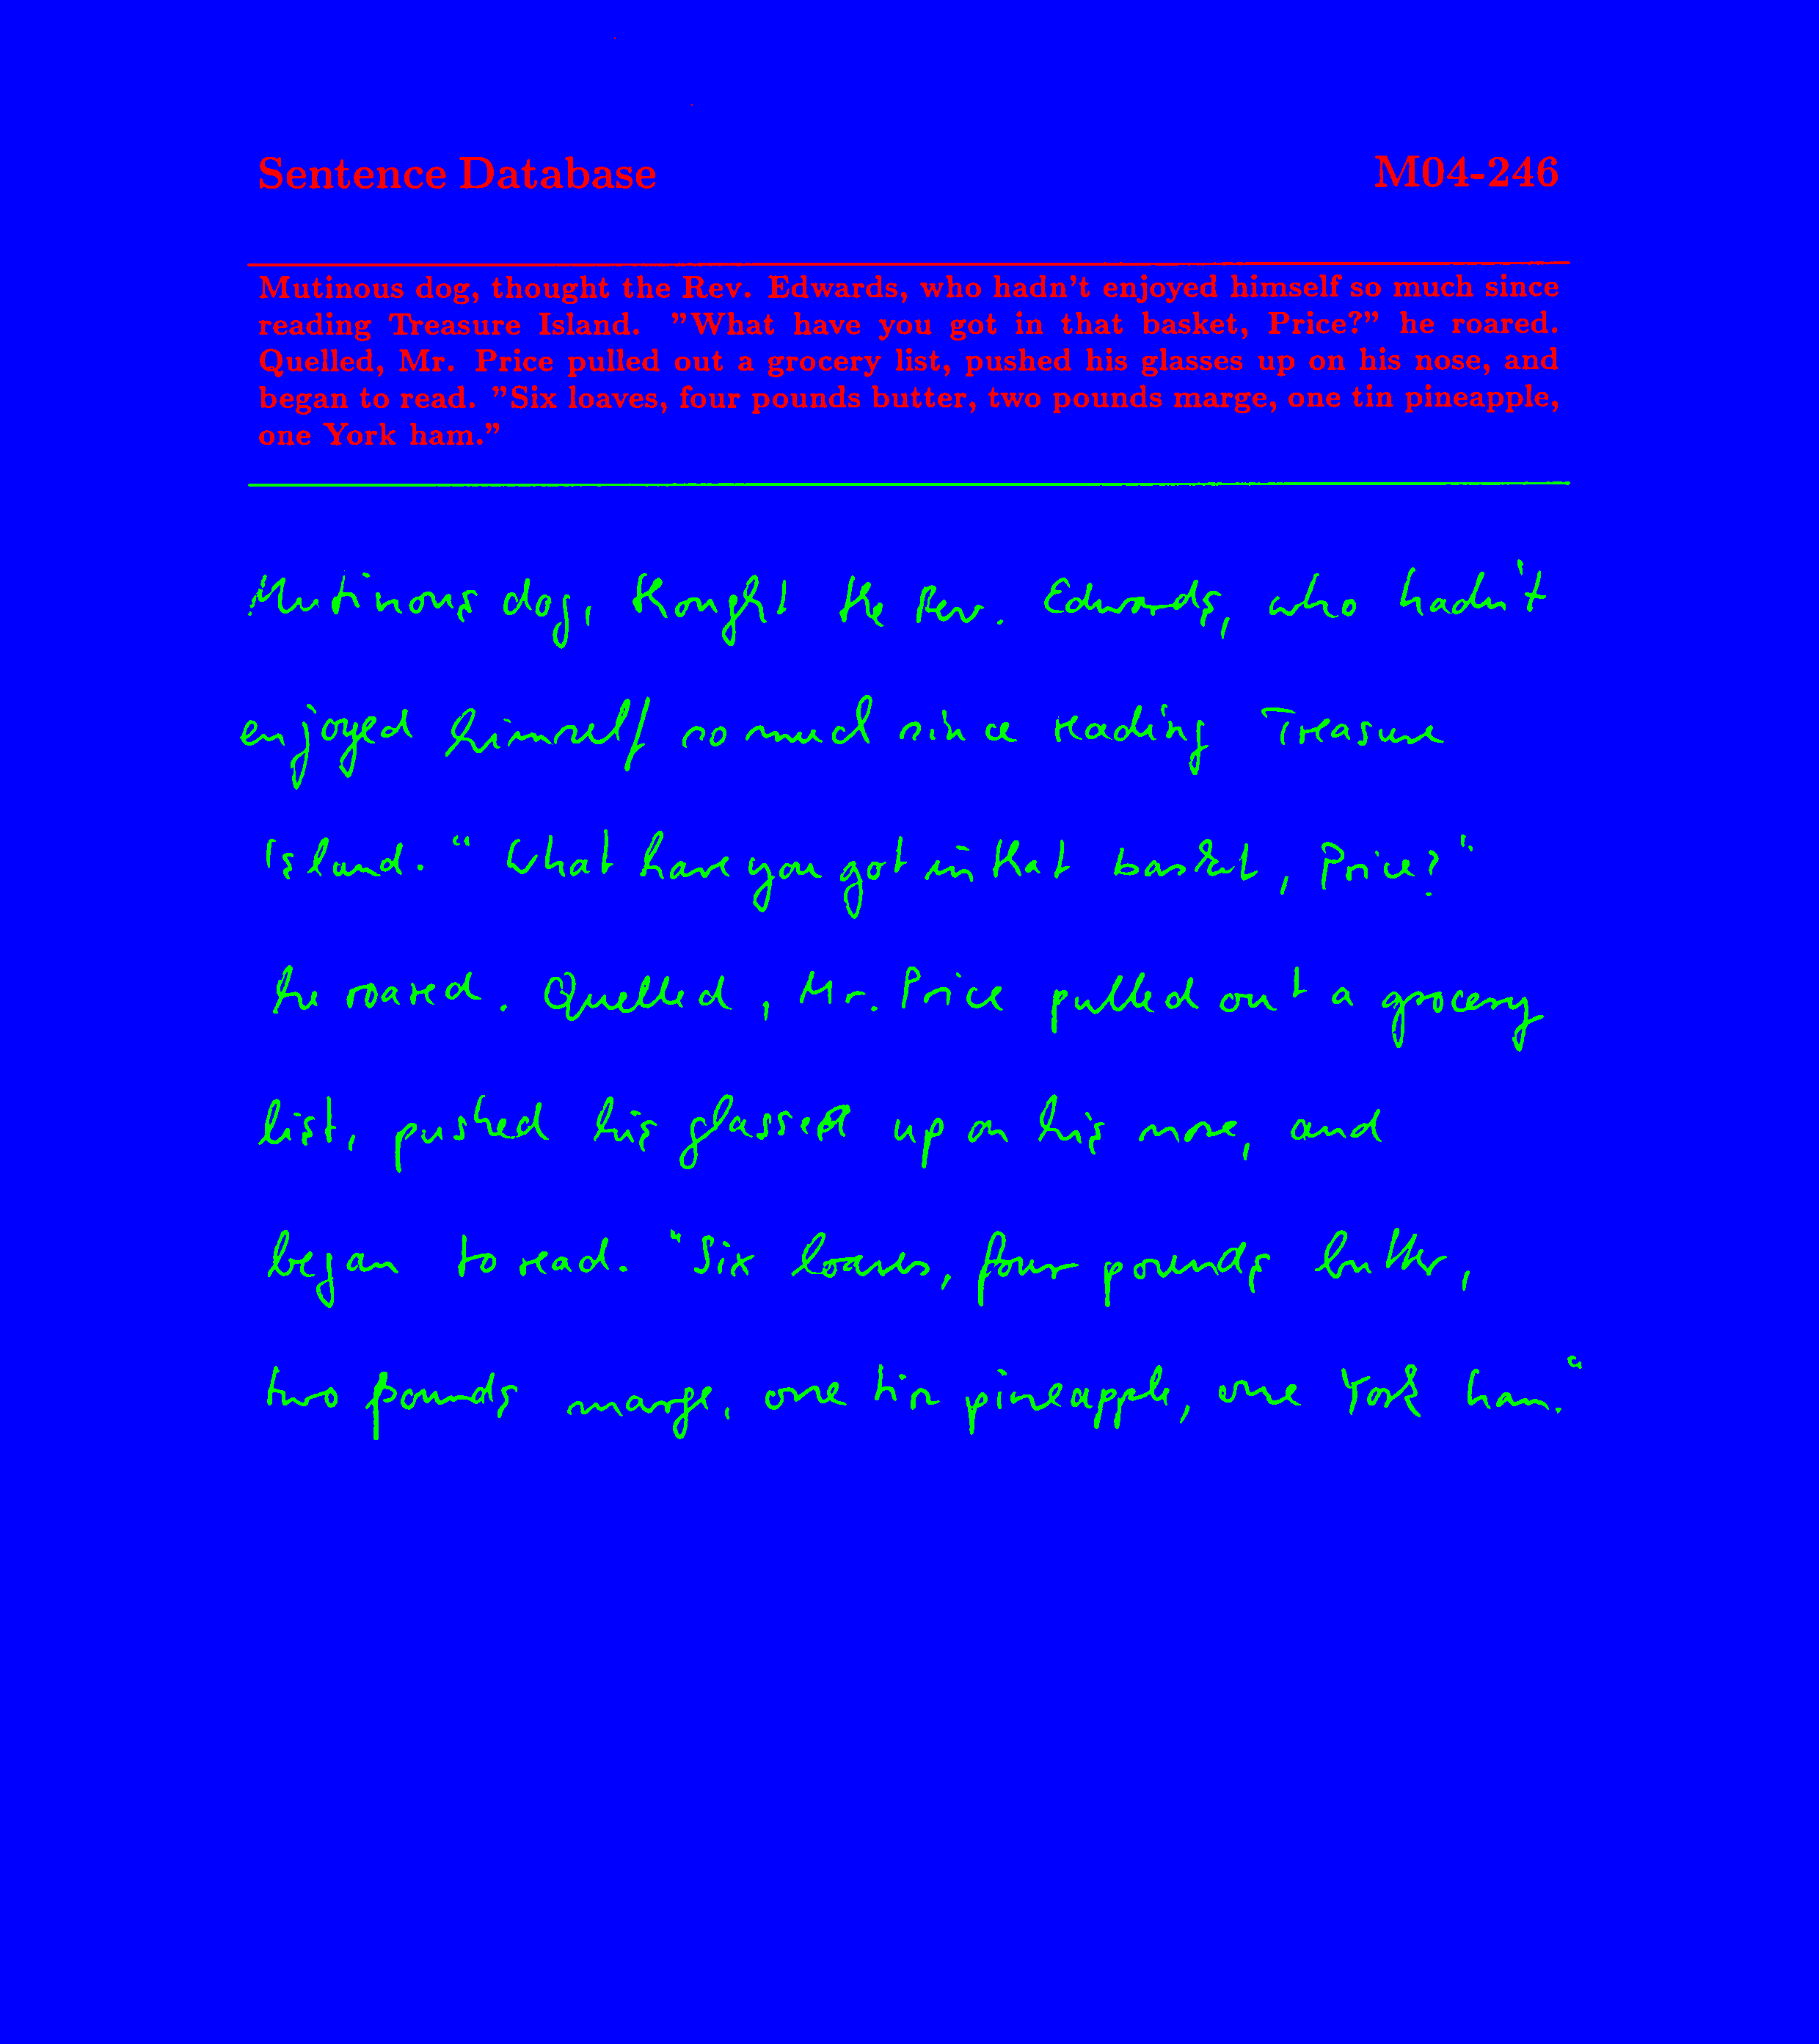 Sentence Database M04-246
Mutinous dog, thought the Rev. Edwards, who hadn't enjoyed himself so much since
reading Treasure Island. "What have you got in that basket, Price?" he roared.
Quelled, Mr. Price pulled out a grocery list, pushed his glasses up on his nose, and
began to read. "Six loaves, four pounds butter, two pounds marge, one tin pineapple,
one York ham."
Mutinous dog, thought the Rev. Edwards, who hadn't
enjoyed himself so much since reading Treasure
Island. "What have you got in that basket, Price?"
he roared. Quelled, Mr. Price pulled out a grocery
list, pushed his glasses up on his nose, and
began to read. "Six loaves, four pounds butter,
two pounds marge, one tin pineapple, one York ham."